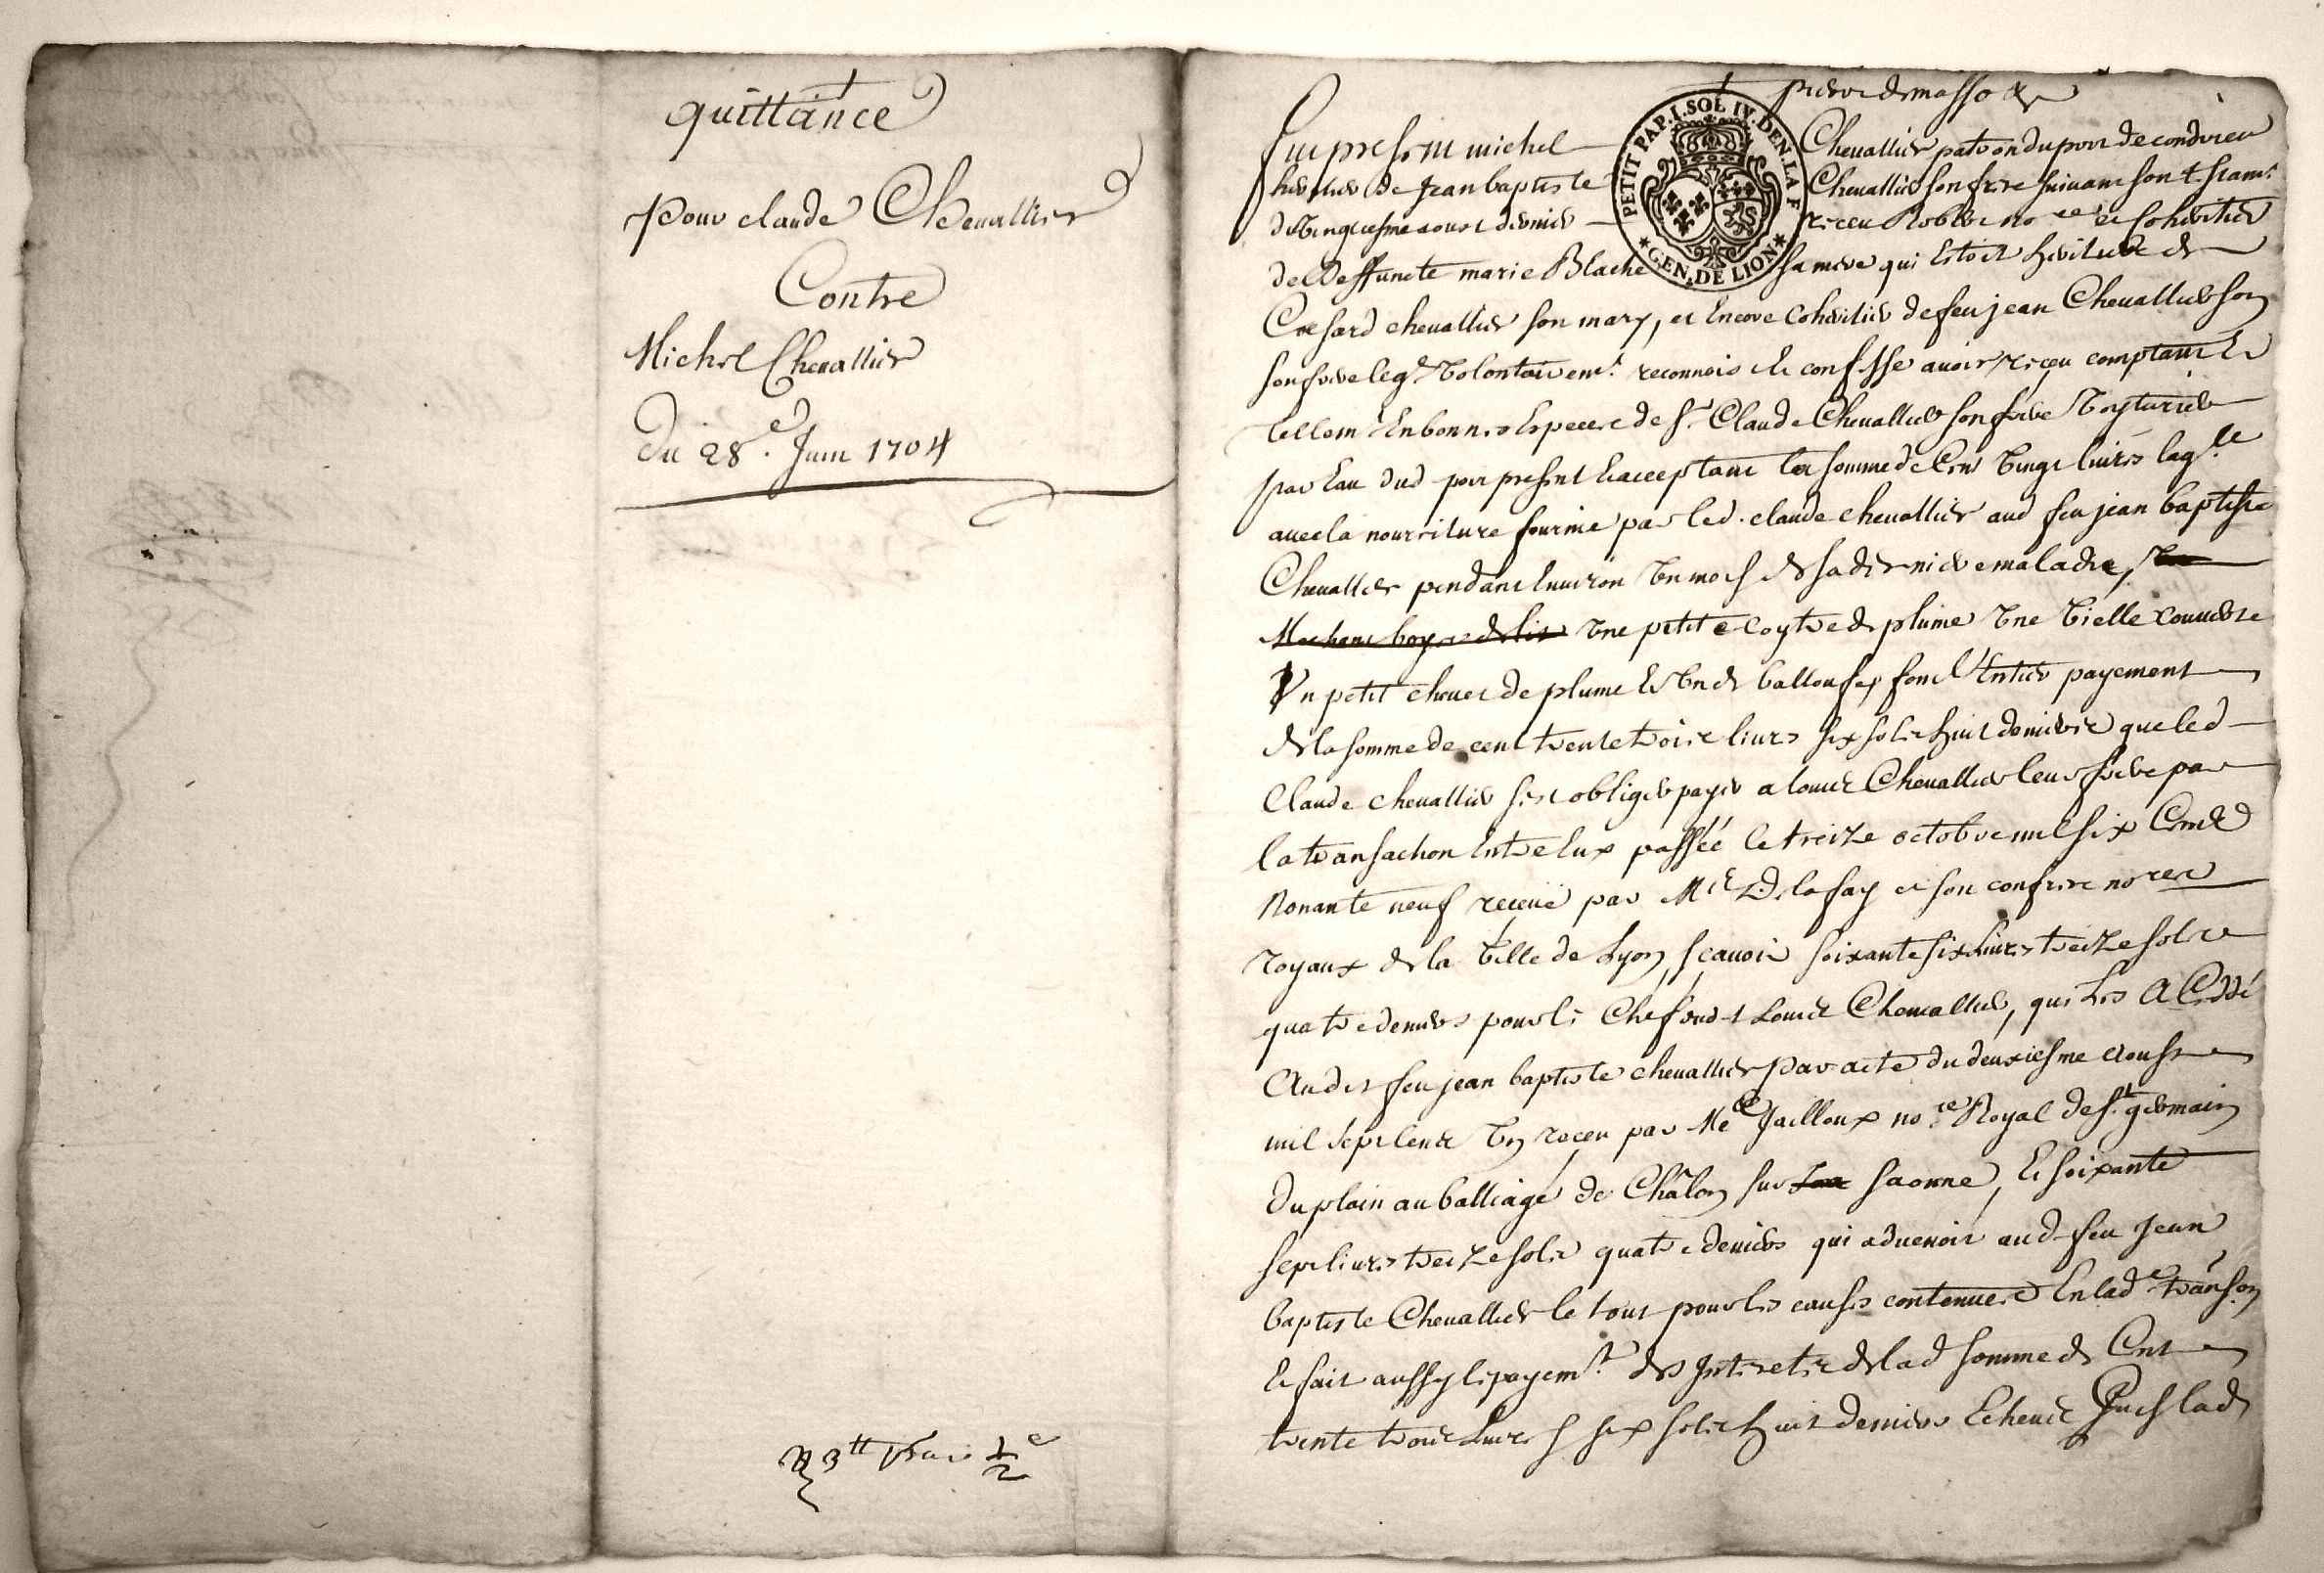 quittance
Pour claude Chevallier
Contre
Michel Chevallier
Du 28.e Juin 1704
3tt 1/2
PETIT PAP. I. SOL IV. DEN. LA F
* GEN. DE LION *
Fut present michel Chevallier patron du port de condrieu
heritier de Jean baptiste Chevallier son frere suivant son testamt.
receu no.re et coheritier
de deffuncte marie Blache sa mere qui estoit heritiere de
Cesard chevallier son mary, et Encore Coheritier de feu jean Chevallier son
son frere leql. Volontairemt. reconnois et confesse avoir receu comptant et
En bonnes Especes de Sr. Claude Chevallier son frere Voyturier
par Eau dud port present et acceptant la somme de Cent Vingt livres laqle.
avec la nourriture fournie par led. claude chevallier aud feu jean baptiste
Chevallier pendant Environ Un mois de sa derniere maladie,
Une petite coytre de plume Une Vielle couverte
Un petit chevet de plume Et Un de font l'Entier payement
de la somme de cent trente trois livres six sols huit deniers que led
Claude chevallier s'est obliger payer a Louis Chevallier leur frere par
la transaction Entre Eux passée le treize octobre mil six Cents
Nonante neuf receüe par Me. Delafay et son confrere nores
royaux de la Ville de Lyon, scavoir soixante six livres treize sols
quatre deniers pour le Chef dud. Louis Chevallier, qui Les A Ceddé
Audit feu jean baptiste chevallier par acte du deuxiesme aoust
mil sept Cents Un receu par Me Jailloux no.re Royal de St. germain
du plain au balliage de Châlon sur saonne, Et soixante
sept livres treize sols quatre deniers qui advenoit aud feu Jean
baptiste Chevallier le tout pour les causes contenues En lade transon
Et fait aussy le payemt. des Interets de lad somme de Cent
trente trois Livres six sols huit deniers Echeus lad